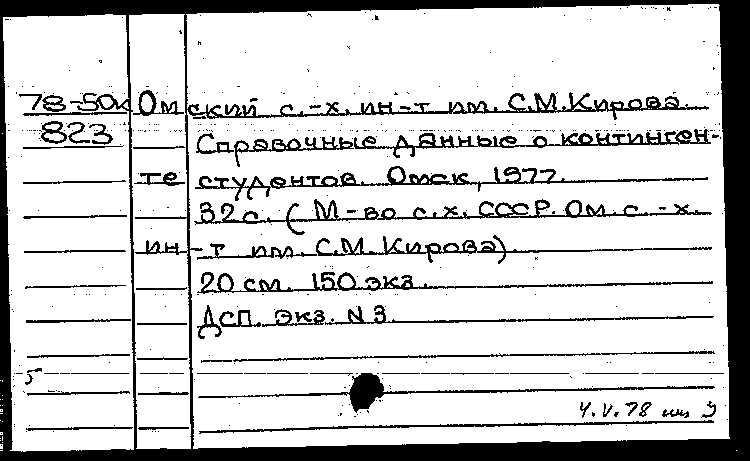 78-50к Омский с.-х. ин-т им. С.М.Кирова.
823 Справочные данные о континген-
те студентов. Омск, 1977.
32 с. (М-во с.х. СССР. Ом. с.-х.
ин-т им. С.М.Кирова).
20 см. 150 экз.
Дсп. Экз. N 3.
5
4.V.78